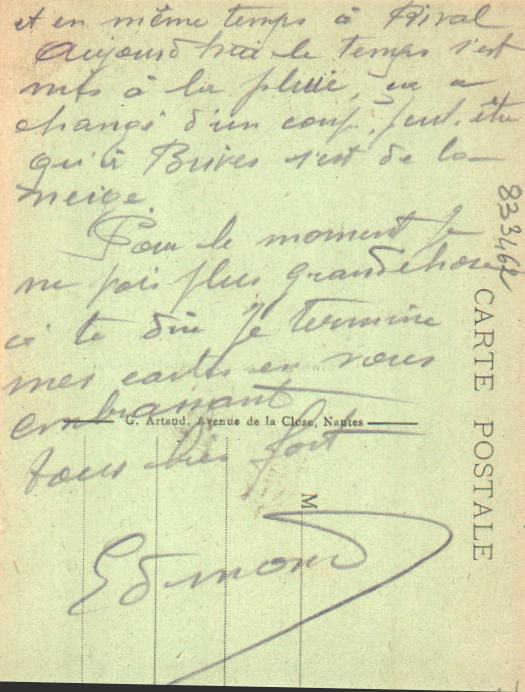 et en même temps à Rival
Aujourd'hui le temps s'est
mis à la pluie, ça a
changé d'un coup, peut être
qu'à Brives s'est de la
neige.
Pour le moment je
ne vois plus grand chose
à te dire je termine
mes cartes en vous
embrassant
tous bien fort
Edmond
G. Artaud, Avenue de la Close, Nantes
M
CARTE POSTALE
833462